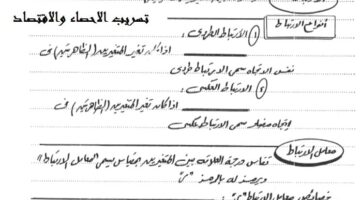 تدريب الاحصاء والاقتصاد
أنواع الارتباط
① الارتباط الطردى
إذا كان تغير المتغيرين (الظاهرتين) فى
نفس الاتجاه سمى الارتباط طردى
② الارتباط العكسى
إذا كان تغير المتغيرين (الظاهرتين) فى
اتجاه مضاد سمى الارتباط عكسى
معامل الارتباط
تقاس درجة العلاقة بين المتغيرين بمقياس يسمى "معامل الارتباط"
ويرمز له بالرمز "ر"
خصائص معامل الارتباط "ر":